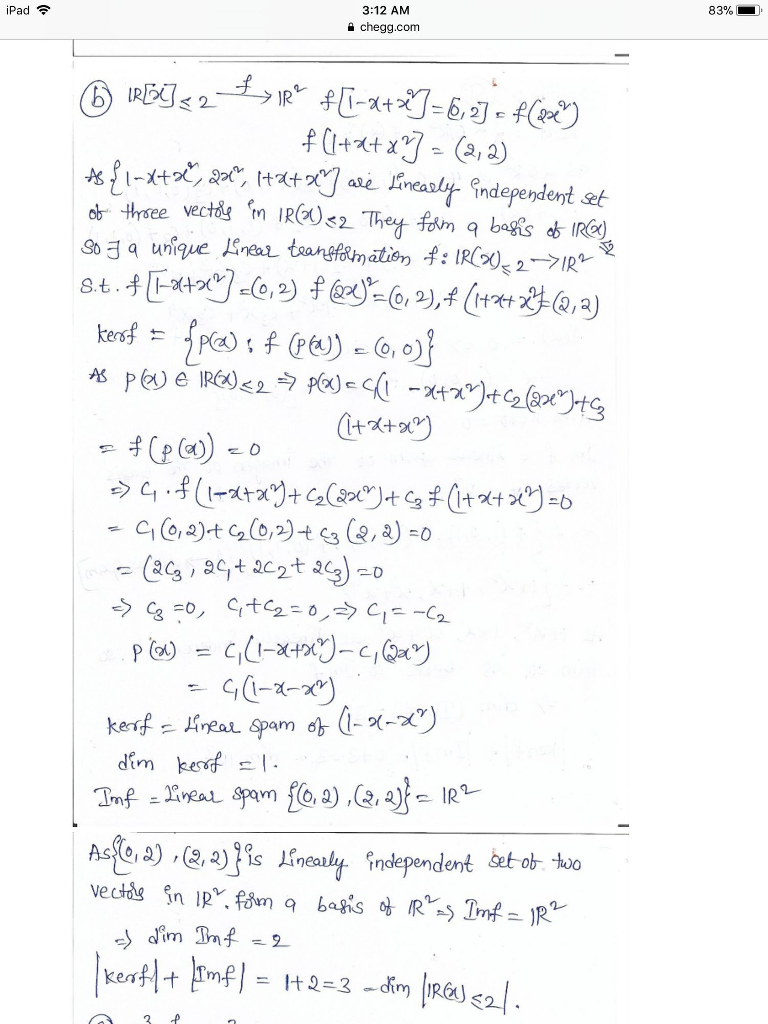 iPad 3:12 AM 83%
chegg.com
(b) IR[x]≤2 —f→ IR² f[1-x+x²] = [0,2] = f(2x²)
f[1+x+x²] = (2,2)
As {1-x+x², 2x², 1+x+x²} are linearly independent set
of three vectors in IR(x)≤2 They form a basis of IR(x)≤2
So ∃ a unique Linear transformation f: IR(x)≤2 → IR²
S.t. f[1-x+x²] = (0,2) f(2x)² = (0,2), f(1+x+x²) = (2,2)
kerf = {p(x) : f(p(x)) = (0,0)}
As p(x) ∈ IR(x)≤2 ⇒ p(x) = C₁(1-x+x²) + C₂(2x²) + C₃
(1+x+x²)
= f(p(x)) = 0
⇒ C₁·f(1-x+x²) + C₂(2x²) + C₃ f(1+x+x²) = 0
= C₁(0,2) + C₂(0,2) + C₃(2,2) = 0
= (2C₃, 2C₁ + 2C₂ + 2C₃) = 0
⇒ C₃ = 0, C₁ + C₂ = 0, ⇒ C₁ = -C₂
p(x) = C₁(1-x+x²) - C₁(2x²)
= C₁(1-x-x²)
kerf = Linear spam of (1-x-x²)
dim kerf = 1.
Imf = Linear spam {(0,2), (2,2)} = IR²
As {(0,2), (2,2)} is Linearly independent set of two
vectors in IR². form a basis of IR² ⇒ Imf = IR²
⇒ dim Imf = 2
|kerf| + |Imf| = 1+2 = 3 = dim |IR(x)≤2|.